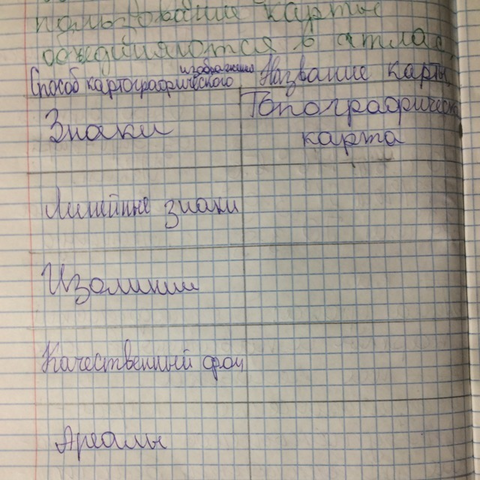 пользования карты
объединяются в атлас
Способ картографического изображения Название карты
Знаки Топографическая
карта
Линейные знаки
Изолинии
Качественный фон
Ареалы